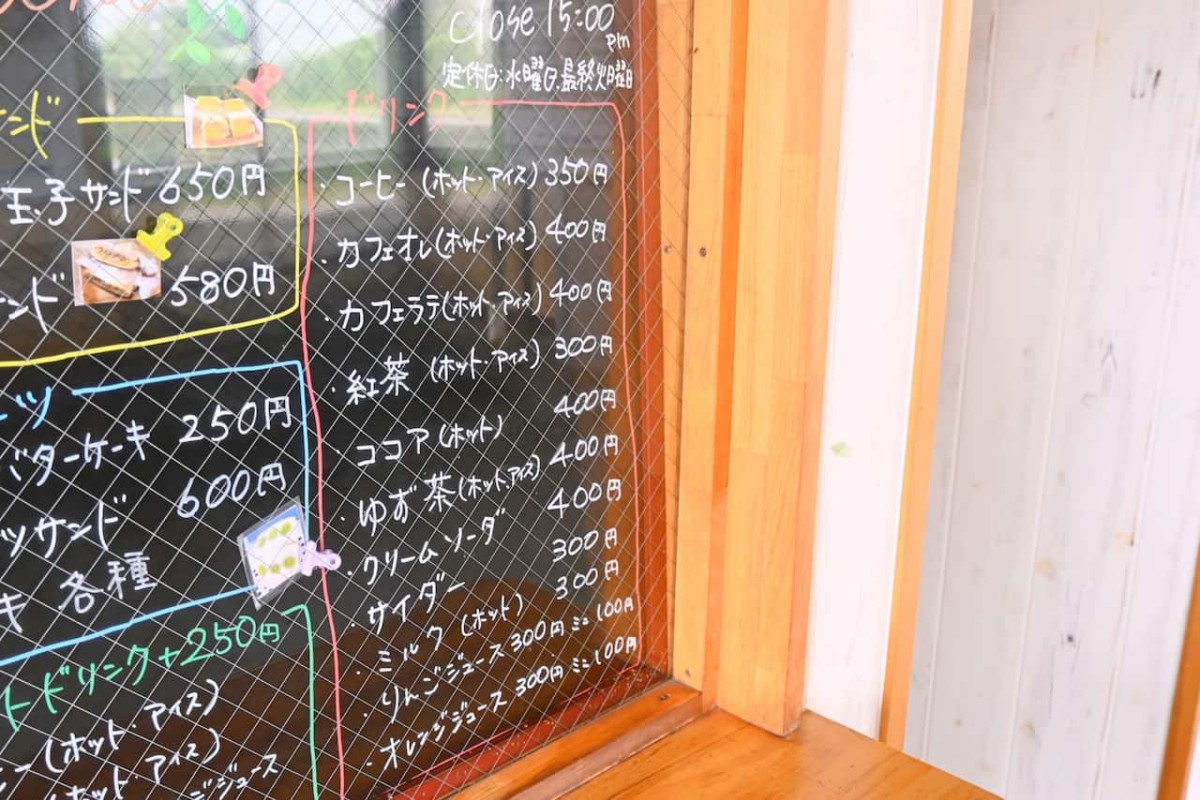 close 15:00
pm
定休日:水曜日.最終火曜日
ンド
玉子サンド 650円
ンド 580円
ーツ
バターケーキ 250円
ツサンド 600円
キ 各種
トドリンク+250円
ー(ホット・アイス)
ホット・アイス)
ジジュース
ドリンク
・コーヒー (ホット・アイス) 350円
・カフェオレ(ホット・アイス) 400円
・カフェラテ(ホット・アイス) 400円
・紅茶 (ホット・アイス) 300円
ココア(ホット) 400円
・ゆず茶(ホット.アイス) 400円
・クリームソーダ 400円
・サイダー 300円
・ミルク (ホット) 300円
・りんごジュース 300円 ミニ100円
・オレンジジュース 300円 ミニ100円